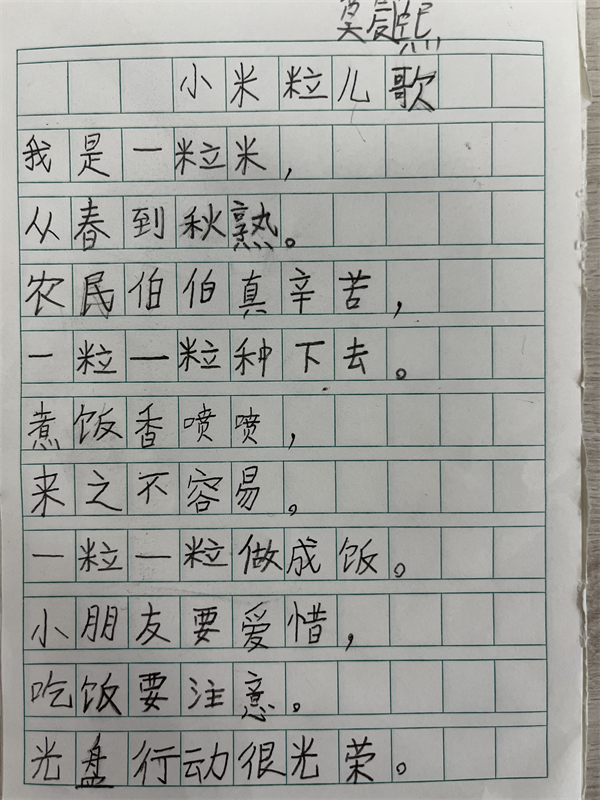 莫熙
小米粒儿歌
我是一粒米，
从春到秋熟。
农民伯伯真辛苦，
一粒一粒种下去。
煮饭香喷喷，
来之不容易。
一粒一粒做成饭。
小朋友要爱惜，
吃饭要注意。
光盘行动很光荣。